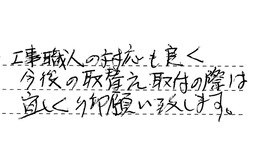 工事職人の対応も良く
今後の取替え取付の際は
宜しく御願い致します。